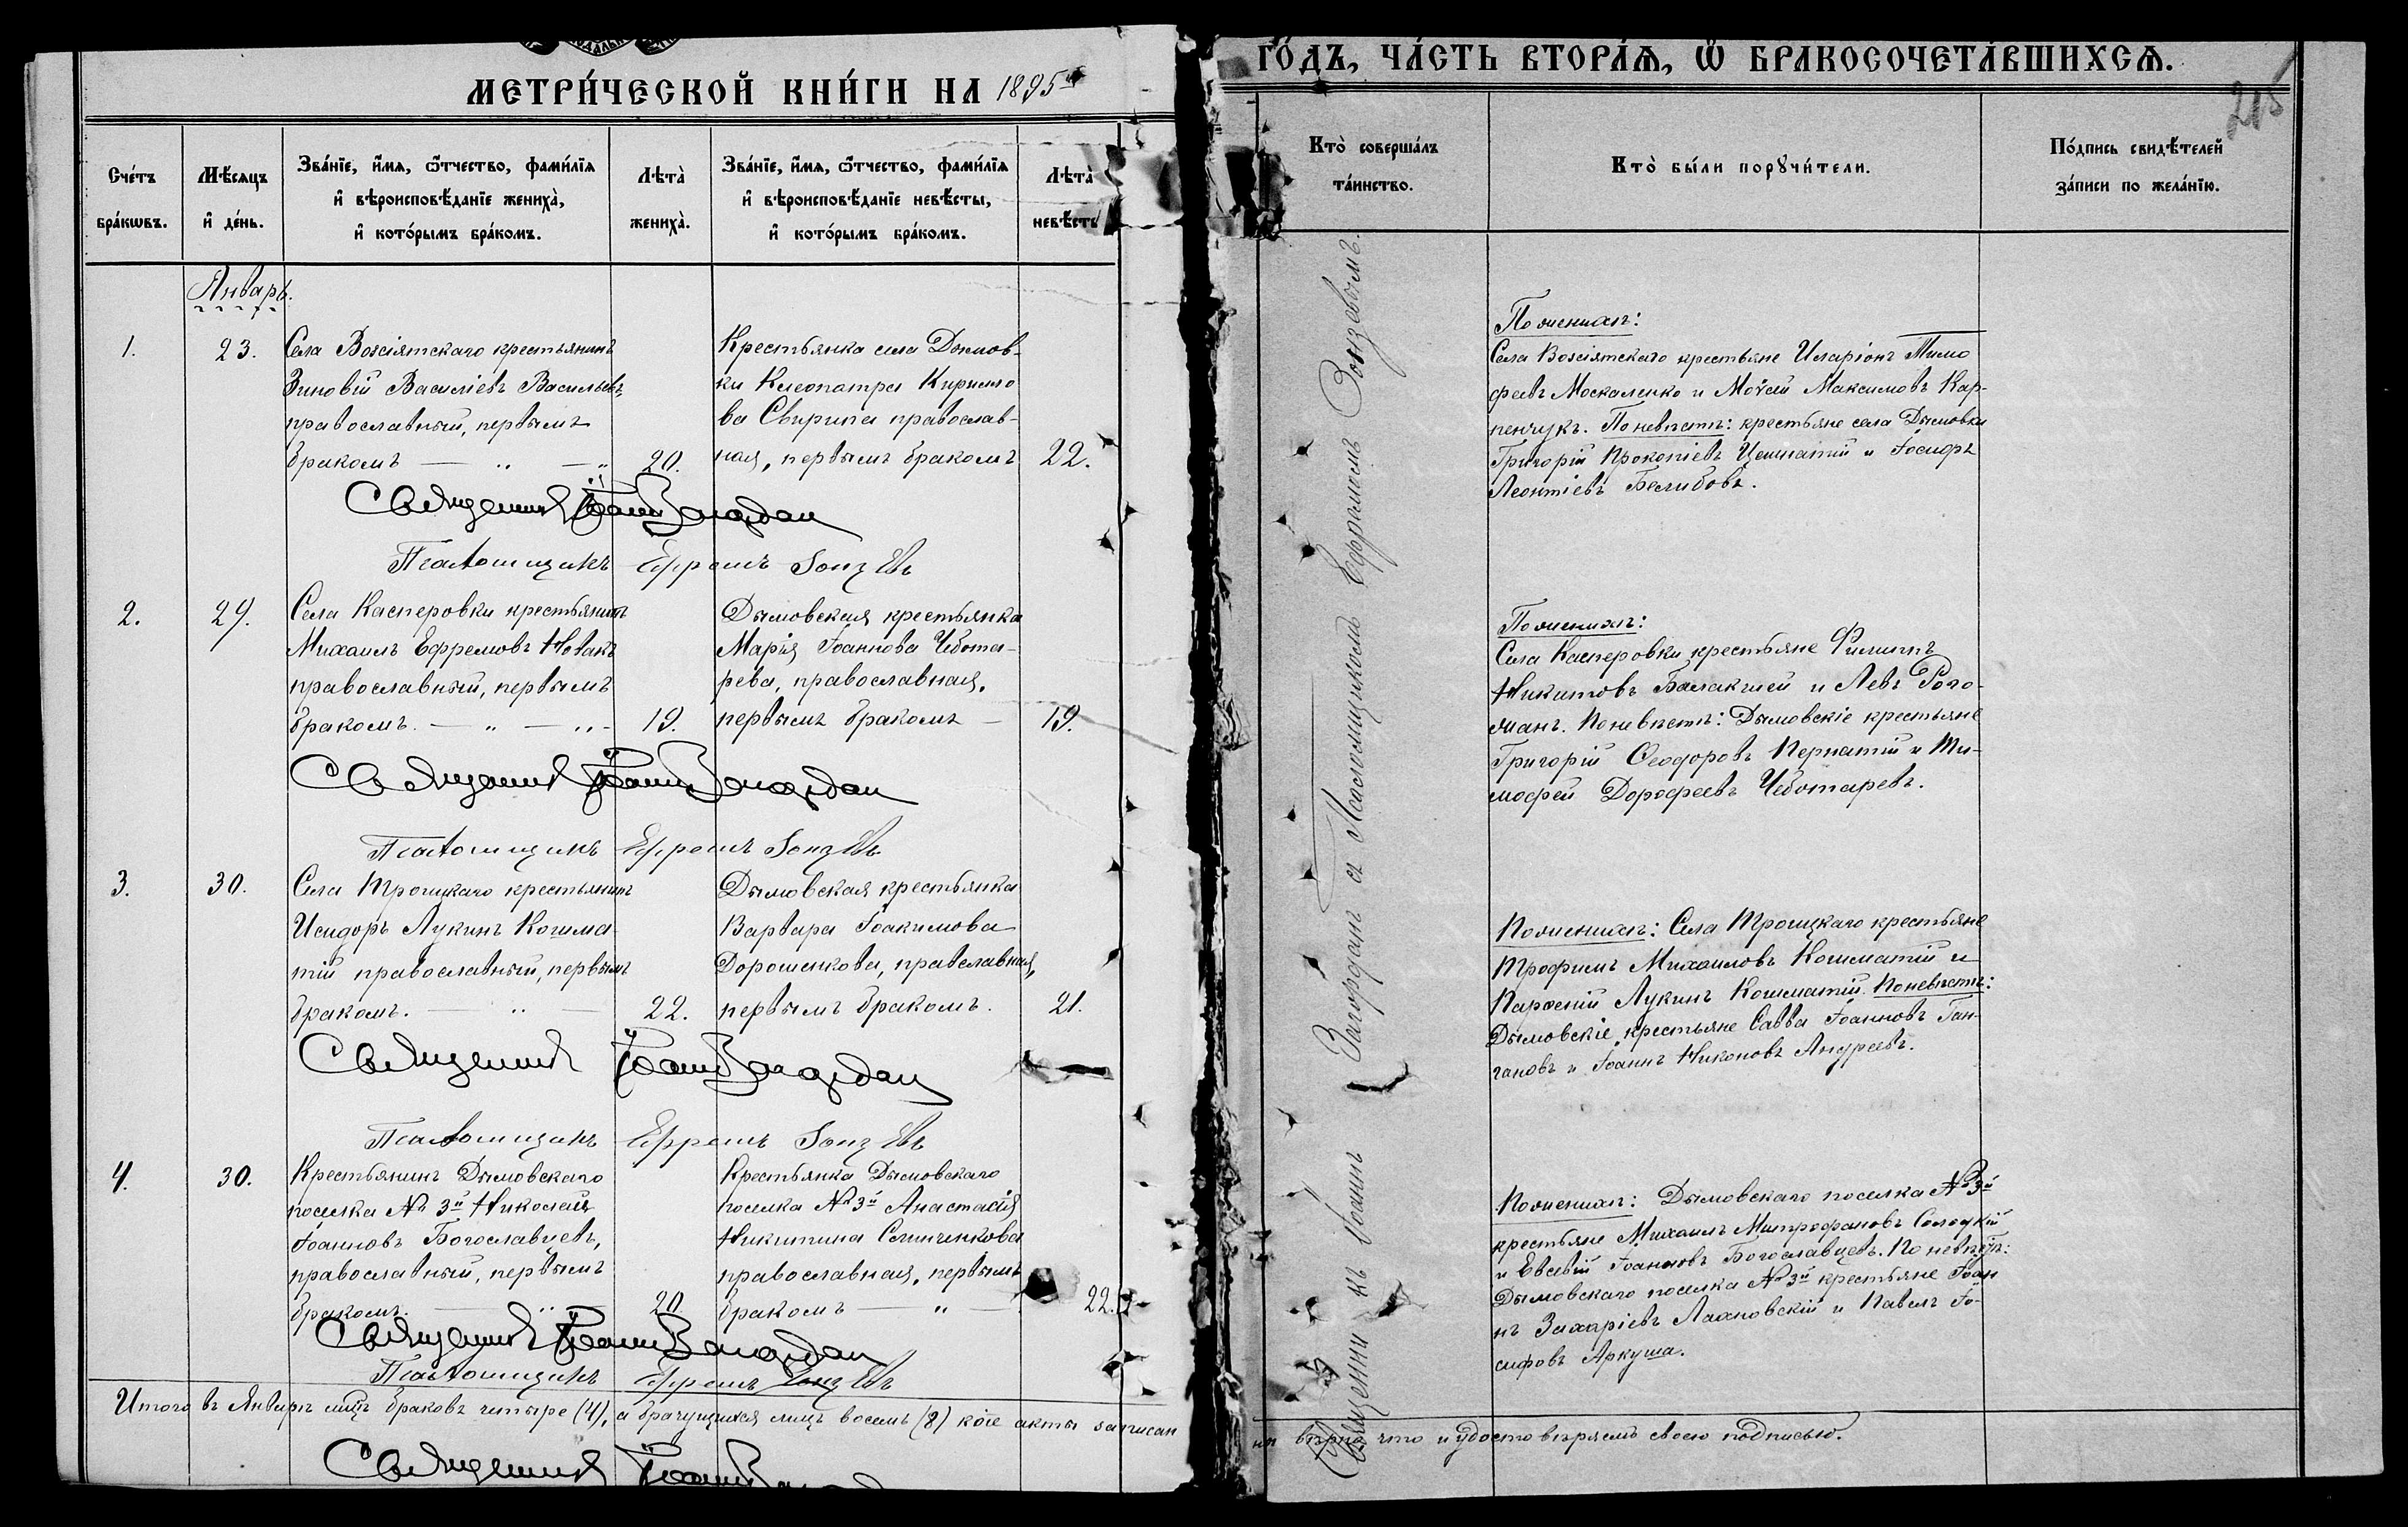 МЕТРИ́ЧЕСКОЙ КНИ́ГИ НА 1895й
ГО́ДЪ, ЧА́СТЬ ВТОРА́Ѧ, Ѿ БРАКОСОЧЕТА́ВШИХСѦ.
215
Сче́тъ бра́кωвъ.
Мѣ́сяцъ и҆ де́нь.
Зва́нїе, и҆́мѧ, ѻ҆́тчество, фами́лїѧ и҆ вѣроисповѣ́данїе жениха̀, и҆ кото́рымъ бра́комъ.
Лѣта̀ жениха̀.
Зва́нїе, и҆́мѧ, ѻ҆́тчество, фами́лїѧ и҆ вѣроисповѣ́данїе невѣ́сты, и҆ кото́рымъ бра́комъ.
Лѣта̀ невѣ́сты
Кто̀ соверша́лъ та́инство.
Кто̀ бы́ли порꙋчи́тели.
По́дпись свидѣ́телей за́писи по жела́нїю.
Январь.
1.
23.
Села Возсіятскаго крестьянинъ
Зиновій Василіевъ Васильевъ
православный, первымъ
бракомъ — „ — „
20.
Крестьянка села Дымов-
ки Клеопатра Кирилло
ва Свирипа православ-
ная, первымъ бракомъ
22.
Священникъ Іоаннъ Загордан
Псаломщикъ Ефремъ Гонзевъ
По женихѣ:
Села Возсіятскаго крестьяне Иларіонъ Тимо
феевъ Москаленко и Моѵсей Максимовъ Кар-
пенчукъ. По невѣстѣ: крестьяне села Дымовки
Григорій Прокопіевъ и Іосифъ
Леонтіевъ
2.
29.
Села Касперовки крестьянинъ
Михаилъ Ефремовъ Новакъ
православный, первымъ
бракомъ. — „ — „ -
19.
Дымовская крестьянка
Марія Іоаннова Чебота-
рева, православная,
первымъ бракомъ —
19.
Священникъ Іоаннъ Загордан
Псаломщикъ Ефремъ Гонзевъ
По женихѣ:
Села Касперовки крестьяне Филиппъ
Никитовъ Балакшей и Левъ Рого-
жанъ. По невѣстѣ: Дымовскіе крестьяне
Григорій Ѳеодоровъ Пернатій и Ти-
мофей Дорофеевъ Чеботаревъ.
3.
30.
Села Троицкаго крестьянинъ
Исидоръ Лукинъ Кошма
тій православный, первымъ
бракомъ. — „ —
22.
Дымовская крестьянка
Варвара Іоакимова
Дорошенкова, православная,
первымъ бракомъ.
21.
Священникъ Іоаннъ Загордан
Псаломщикъ Ефремъ Гонзевъ
По женихѣ: Села Троицкаго крестьяне
Трофимъ Михаиловъ Кошматій и
Парѳеній Лукинъ Кошматій. По невѣстѣ:
Дымовскіе крестьяне Савва Іоанновъ Ган-
гановъ и Іоаннъ Никоновъ Андреевъ.
4.
30.
Крестьянинъ Дымовскаго
поселка № 3й Николай
Іоанновъ Богославцевъ,
православный, первымъ
бракомъ. — „
20
Крестьянка Дымовскаго
поселка № 3й Анастасія
Никитина Семиченкова
православная, первымъ
бракомъ „ —
22.
Священникъ Іоаннъ Загордан
Псаломщикъ Ефремъ Гонзевъ
По женихѣ: Дымовскаго поселка № 3й
крестьяне Михаилъ Митрофановъ Солодкій
и Евсевій Іоанновъ Богославцевъ. По невѣстѣ:
Дымовскаго поселка № 3й крестьяне Іоан
нъ Захаріевъ Лахновскій и Павелъ Іо-
сифовъ Аркуша.
Священникъ Іоаннъ Загорданъ съ Псаломщикомъ Ефремомъ Гонзевымъ.
Итого въ Январѣ мцѣ браковъ четыре (4), а брачущихся лицъ восемь (8) кои акты записан
ны вѣрно что и удостовѣряемъ своею подписью.
Священникъ Іоаннъ